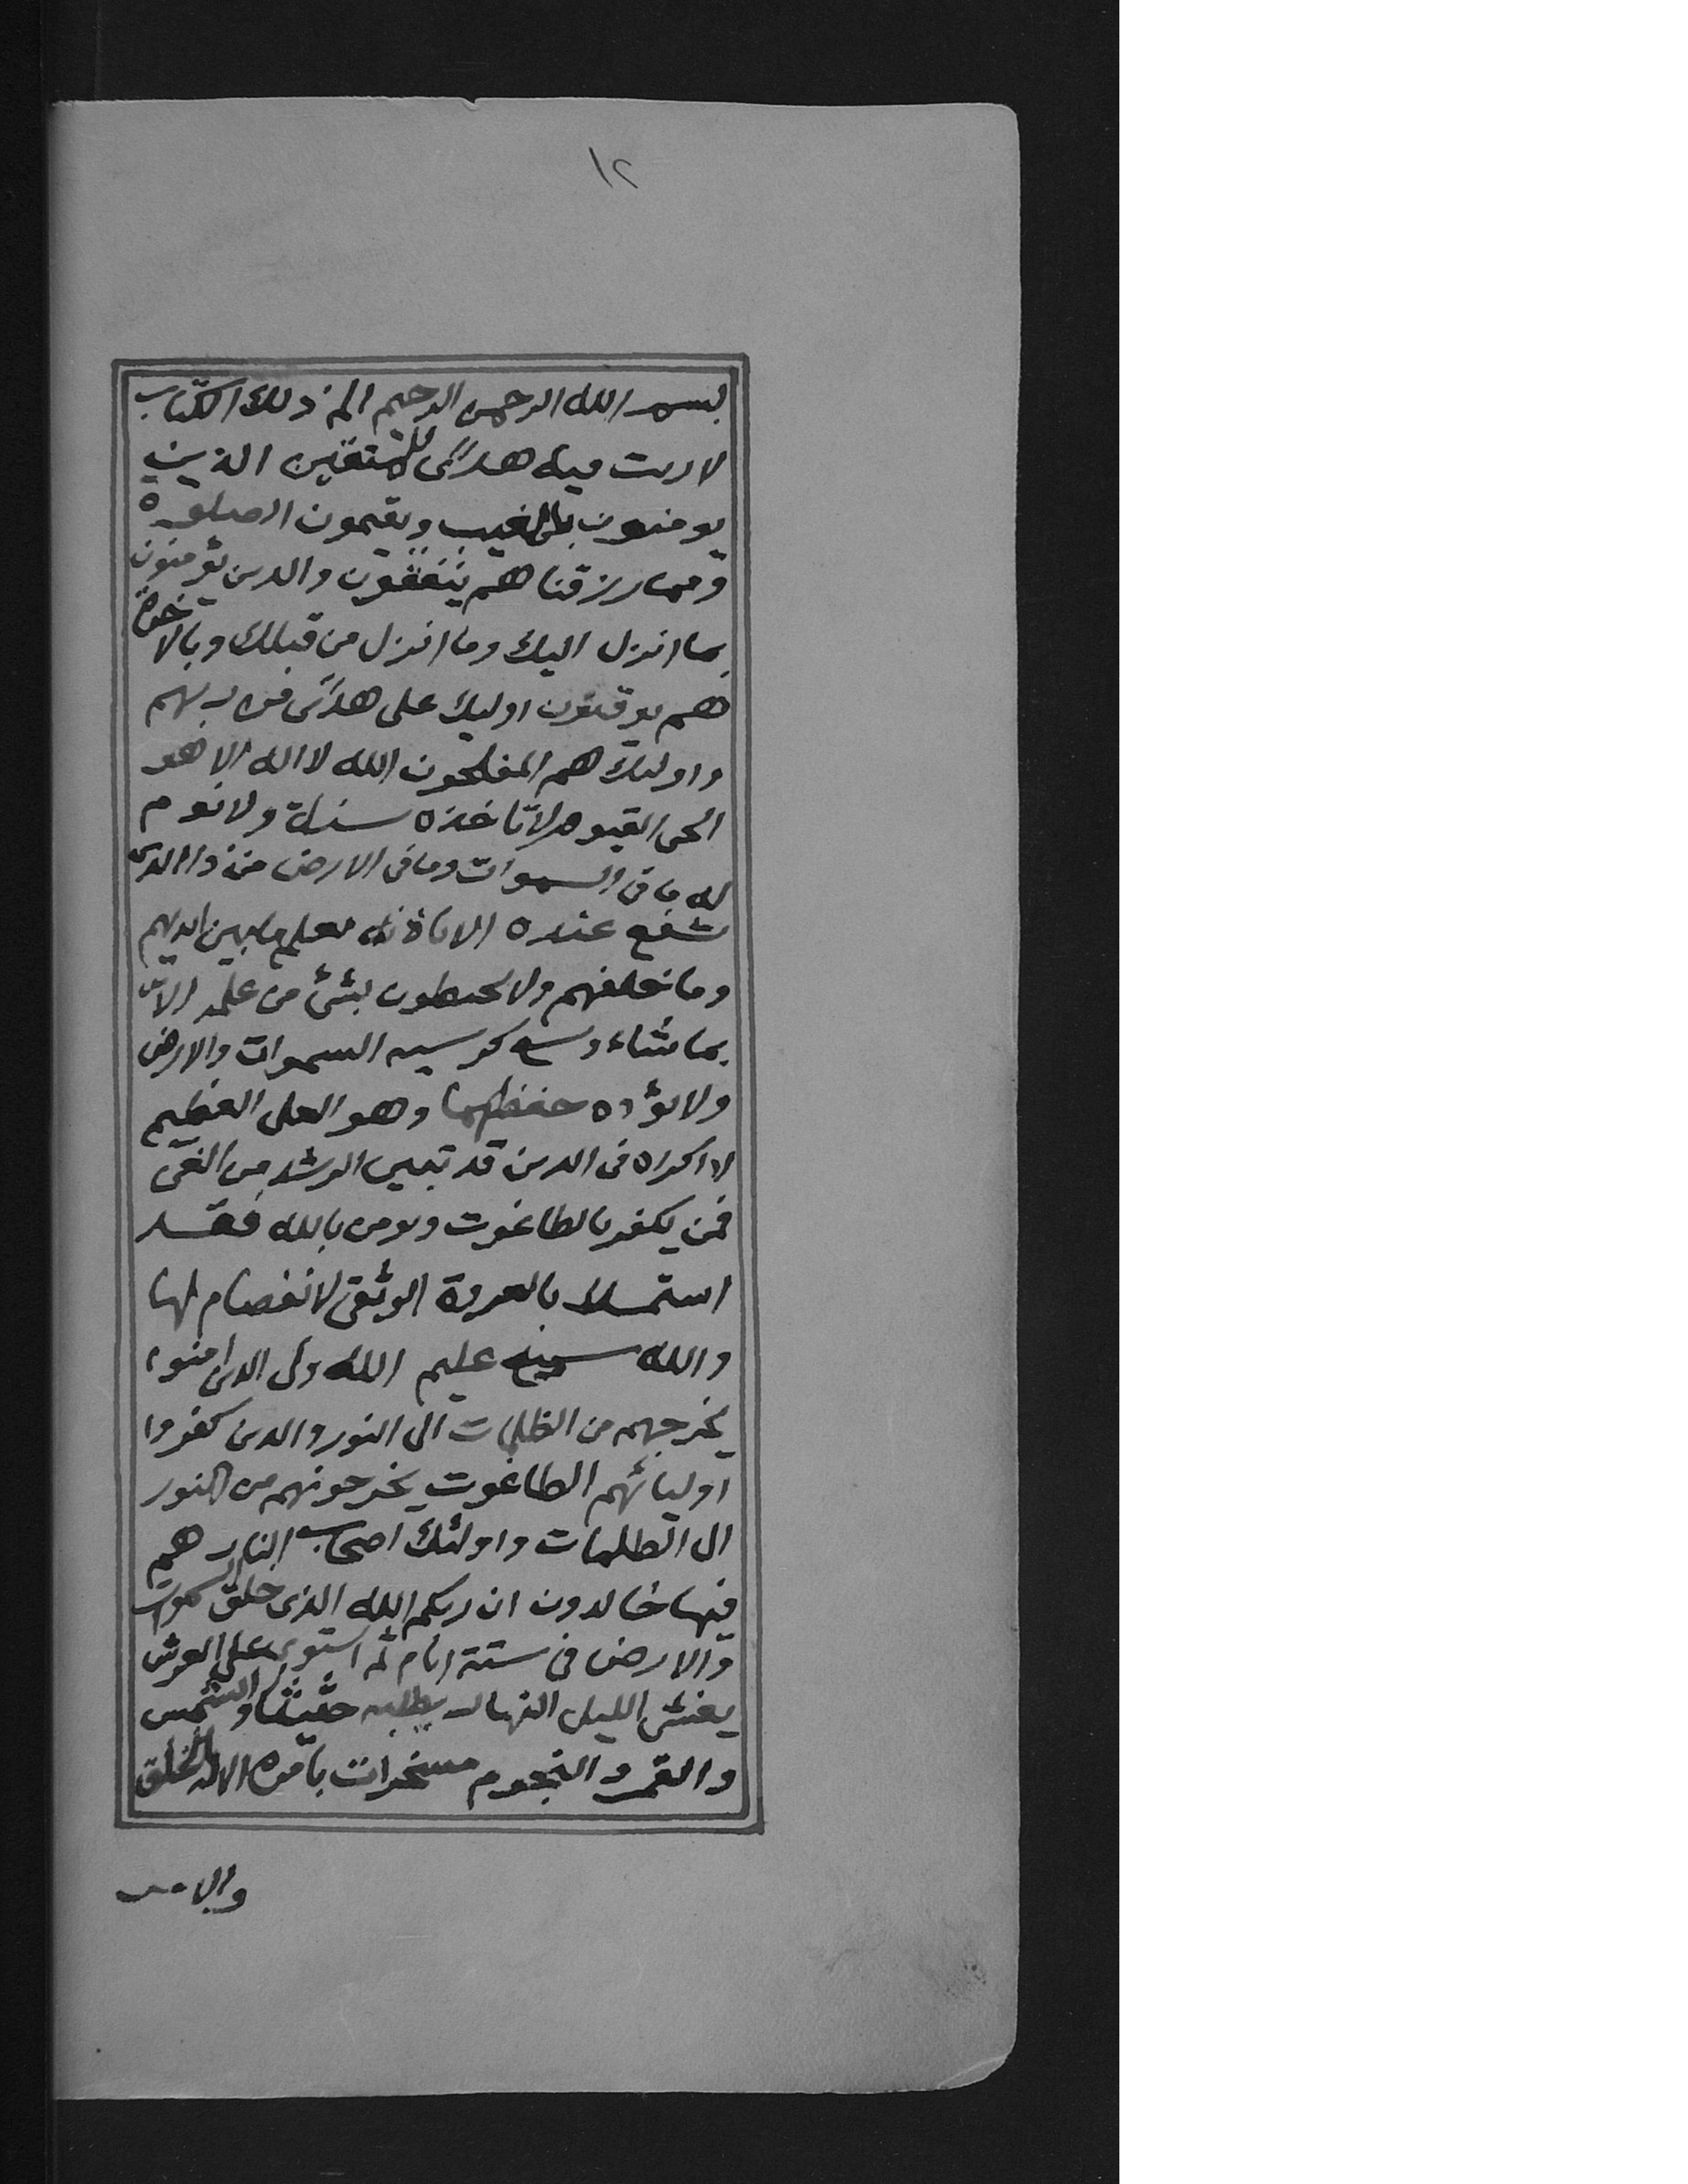 ١٢
بسم الله الرحمن الرحيم الم ذلك الكتاب
لا ريب فيه هدى للمتقين الذين
يومنون بالغيب ويقيمون الصلوة
ومما رزقناهم ينفقون والذين يؤمنون
بما انزل اليك وما انزل من قبلك وبالاخرة
هم يوقنون اوليك على هدى من ربهم
واوليك هم المفلحون الله لا اله الا هو
الحى القيوم لا تاخذه سنة ولا نوم
له ما فى السموات وما فى الارض من ذا الذى
يشفع عنده الا باذنه يعلم ما بين ايديهم
وما خلفهم ولا يحيطون بشئ من علمه الا
بما شاء وسع كرسيه السموات والارض
ولا يؤده حفظهما وهو العلى العظيم
لا اكراه فى الدين قد تبين الرشد من الغى
فمن يكفر بالطاغوت ويومن بالله فقد
استمسك بالعروة الوثقى لا انفصام لها
والله سميع عليم الله ولى الذين امنوا
يخرجهم من الظلمات الى النور والذين كفروا
اوليائهم الطاغوت يخرجونهم من النور
الى الظلمات واولئك اصحاب النار هم
فيها خالدون ان ربكم الله الذى خلق السموات
والارض فى ستة ايام ثم استوى على العرش
يغشى الليل النهار يطلبه حثيثا والشمس
والقمر والنجوم مسخرات بامره الا له الخلق
والامر